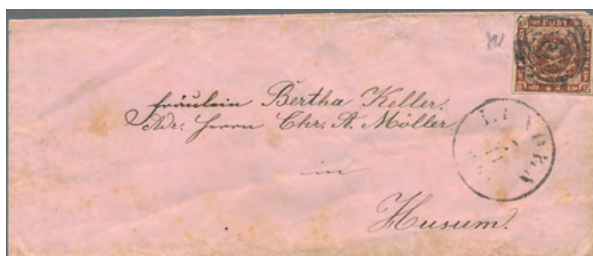 Fräulein Bertha Keller.
Adr. Herrn Chr. A. Möller
in
Husum.
LUNDEN